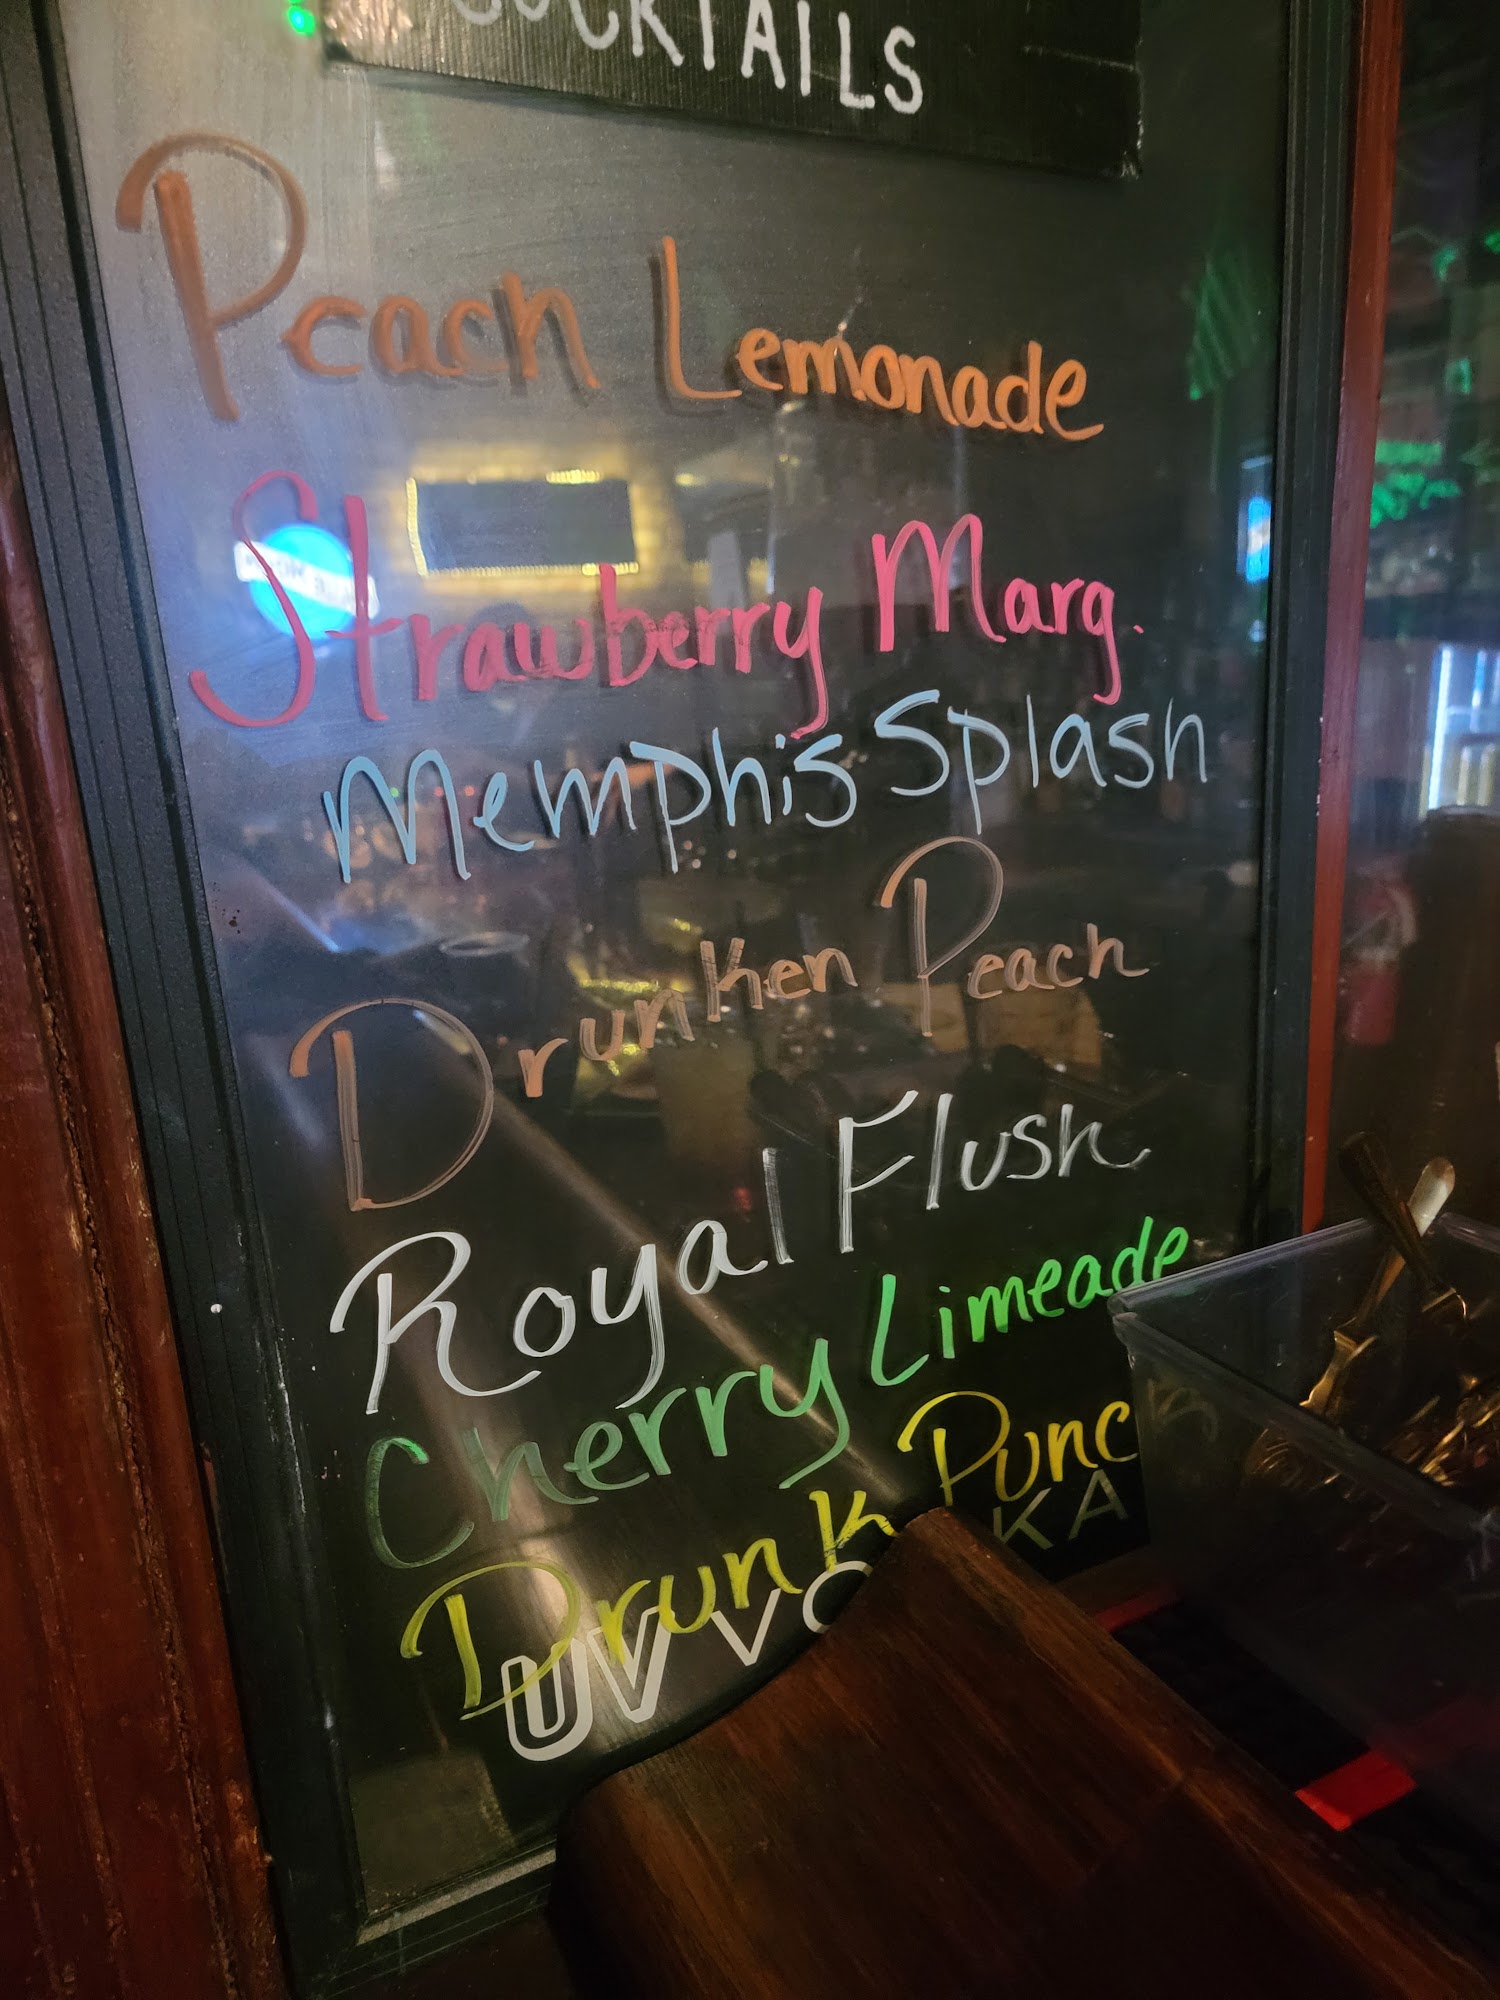 COCKTAILS
Peach Lemonade
Strawberry Marg.
Memphis Splash
Drunken Peach
Royal Flush
Cherry Limeade
Drunk Punc
UV VO KA